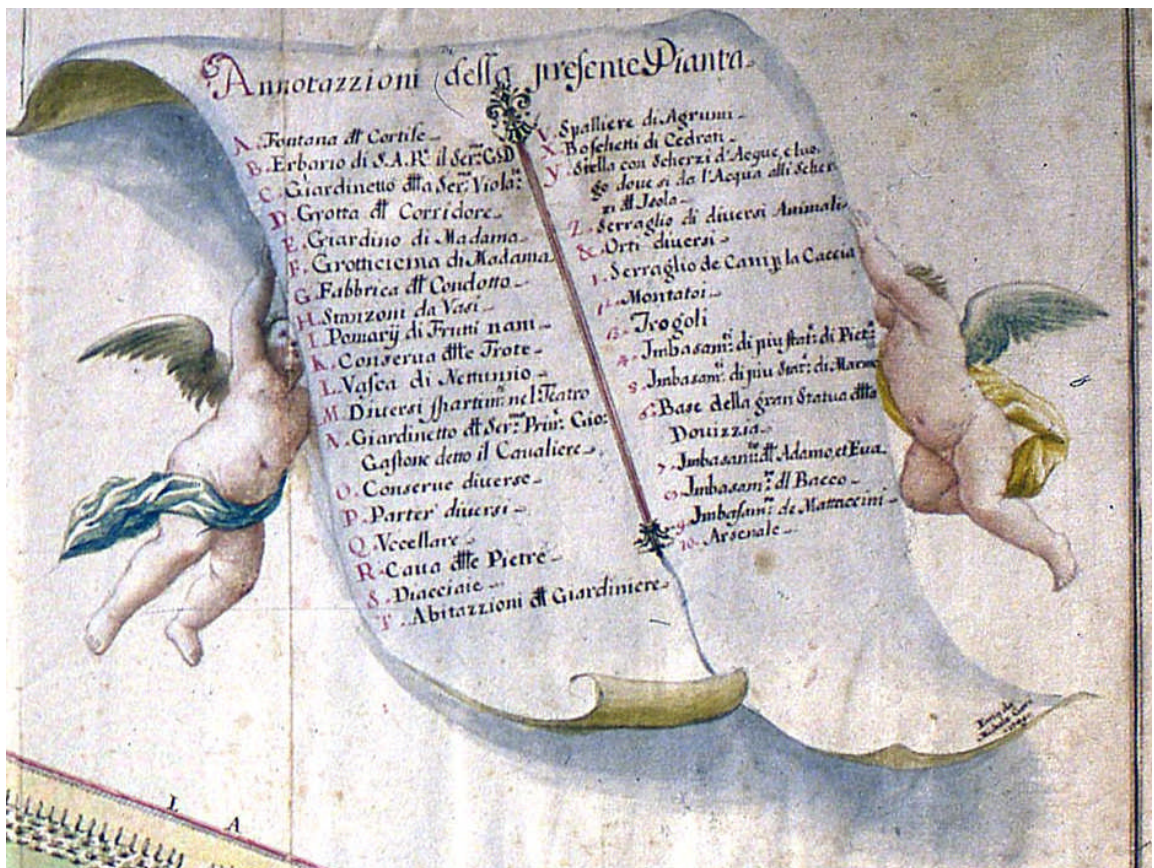 Annotazzioni della presente Pianta
A. Fontana dll Cortile
B. Erbario di S.A.R. il Ser.mo G.D
C. Giardinetto dlla Ser.ma Viola.te
D. Grotta dll Corridore
E. Giardino di Madama
F. Grotticicina di Madama
G. Fabbrica dll Condotto
H. Stanzoni da Vasi
I. Pomarij di Frutti nani
K. Conserua dlle Trote
L. Vasca di Nettunnio
M. Diuersi spartim.ti nel Teatro
N. Giardinetto dll Ser.mo Prin. Gio:
Gastone detto il Caualiere
O. Conserue diuerse
P. Parter' diuersi
Q. Vccellare
R. Caua dlle Pietre
S. Diacciaie
T. Abitazzioni dll Giardiniere
V. Spalliere di Agrumi
X. Boschetti di Cedrati
Y. Stella con Scherzi d'Acque, e luo.
go doue si da l'Acqua alli Scher.
zi dll Isola
Z. Serraglio di diuersi Animali
&. Orti diuersi
1. Serraglio de Cani p. la Caccia
2. Montatoi
3. Trogoli
4. Imbasam.ti di piu stat. di Piet.
5. Imbasam.ti di piu Stat. di Marm
6. Base della gran Statua dlla
Douizzia
7. Imbasam.to dll Adamo, et Eua
8. Imbasam.to dl Bacco
9. Imbasam.to de Mattaccini
10. Arsenale
L
A